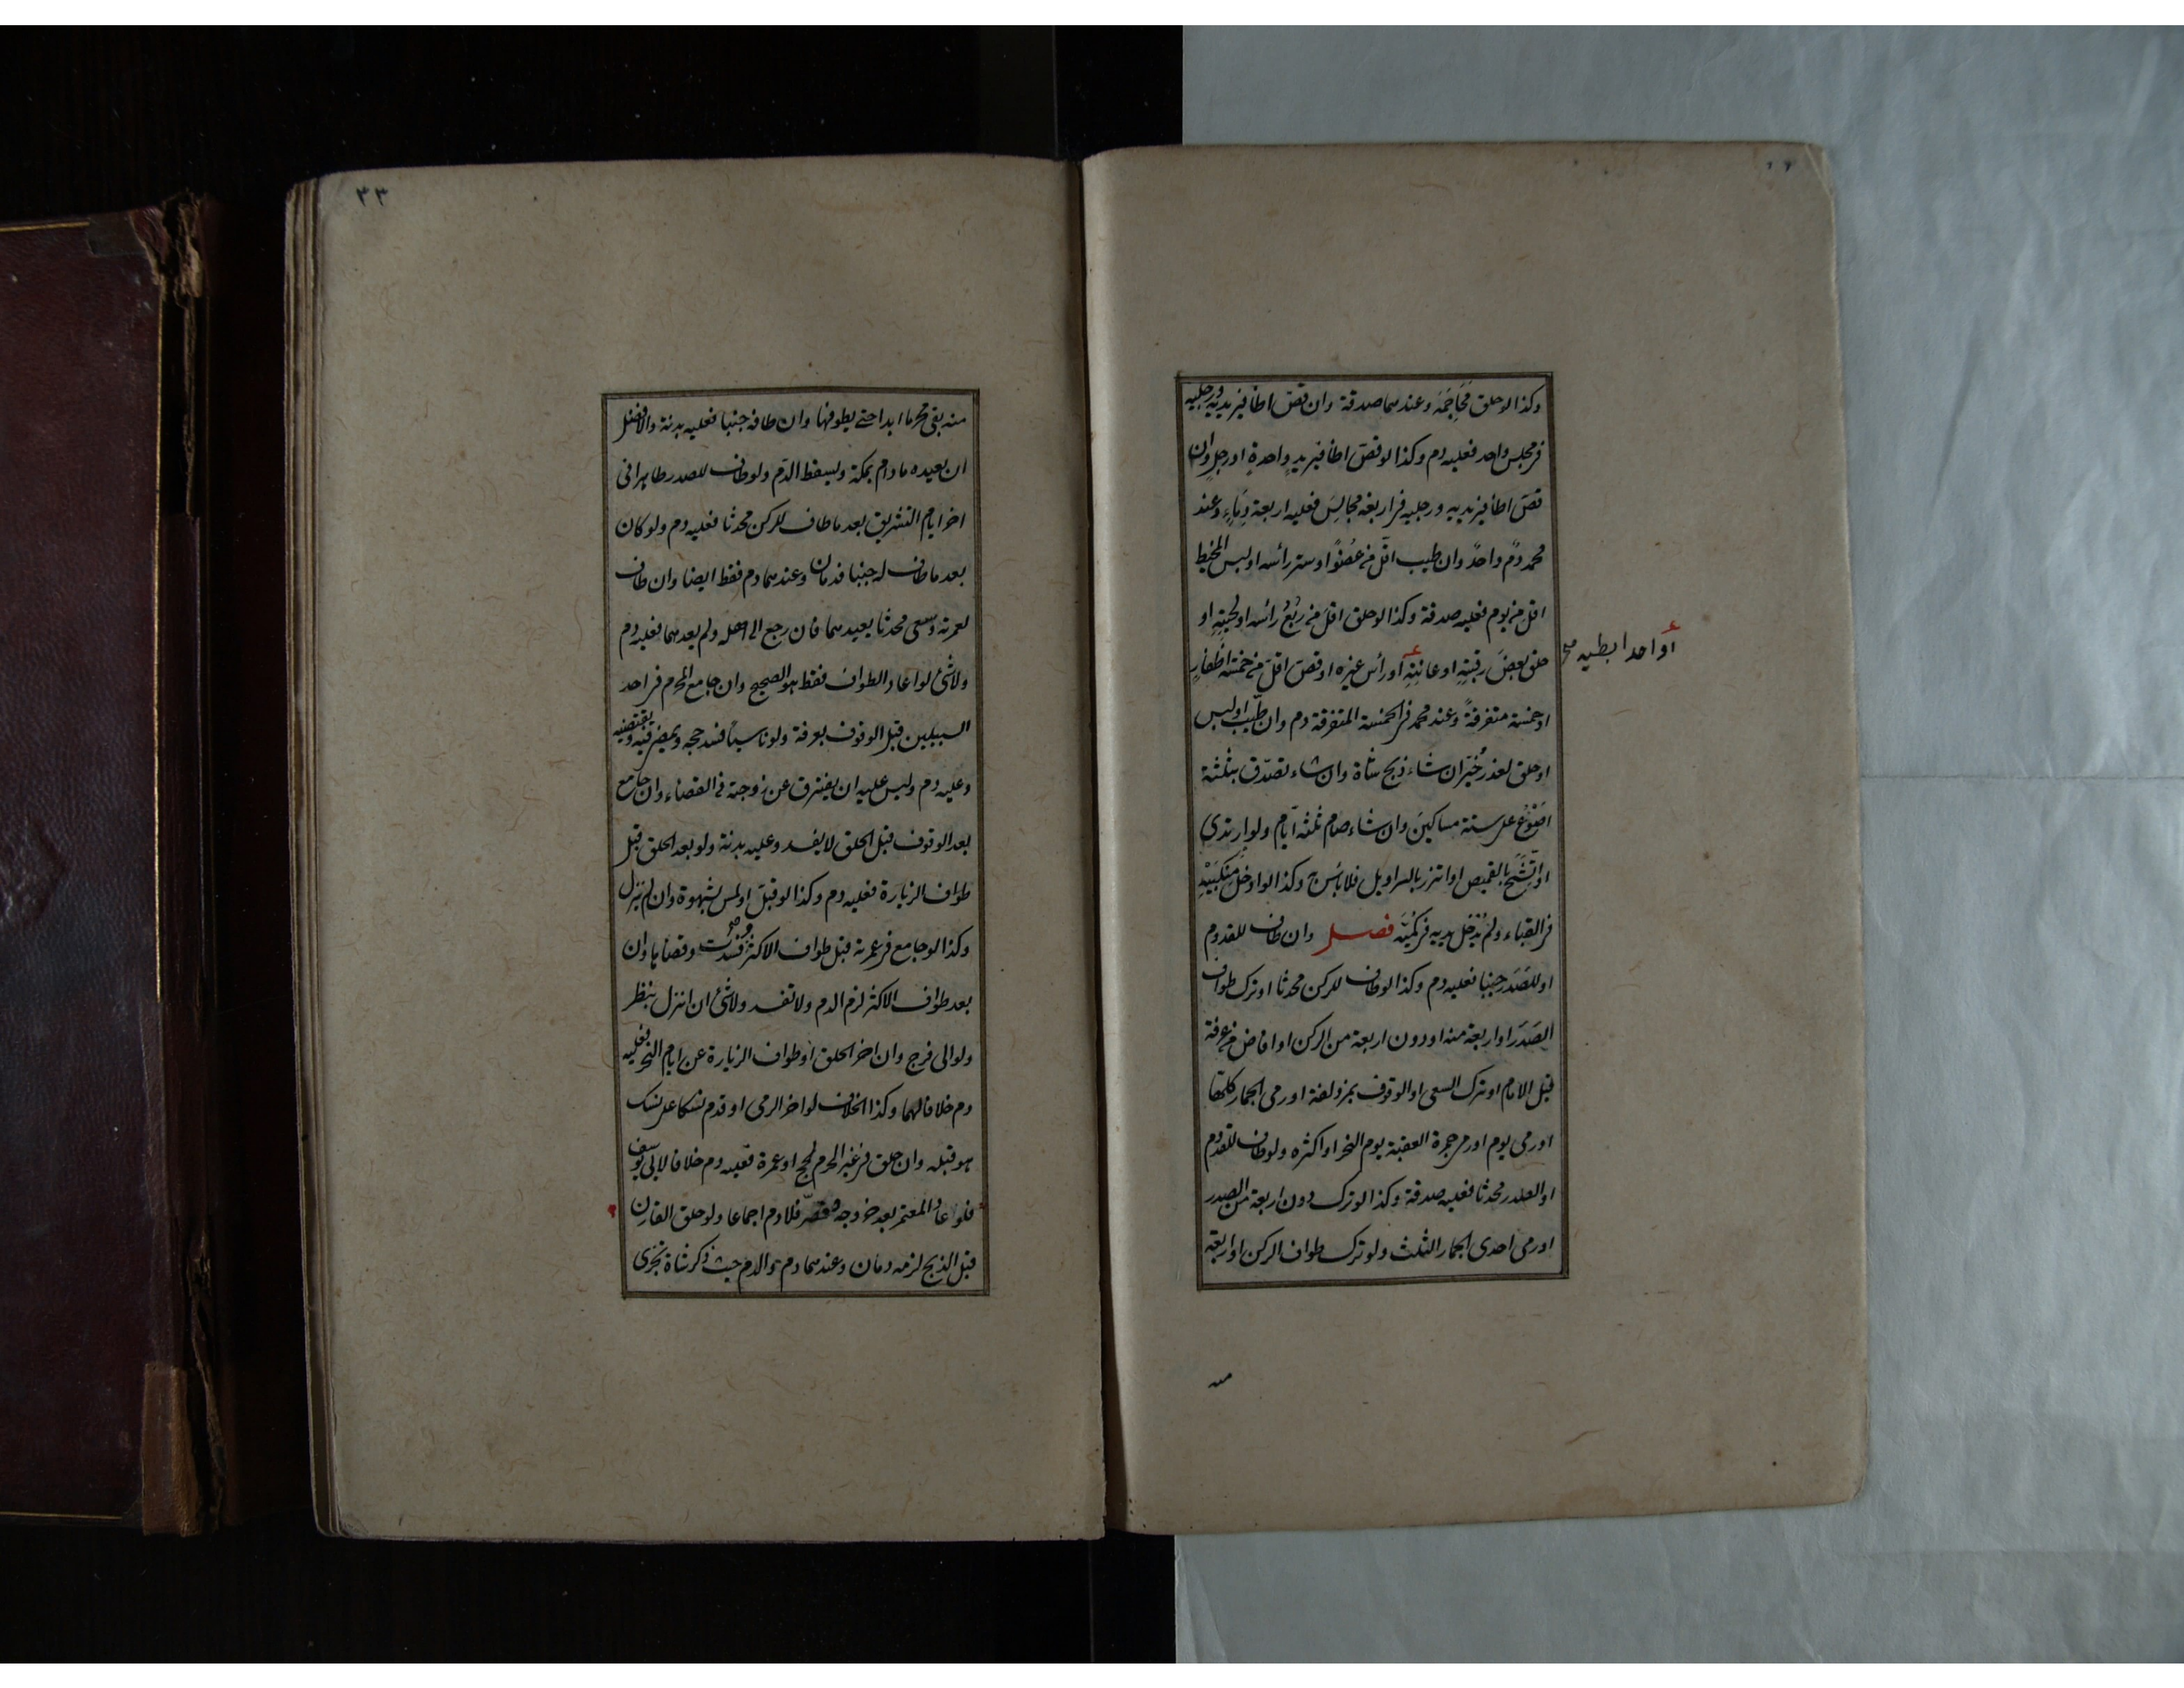 وكذا لو حلق مَحَاجِمَه وعندهما صدقة وان قصّ اظافير يديه ورجليه
في مجلس واحد فعليه دم وكذا لو قصّ اظافير يدٍ واحدةٍ او رجل وان
قصّ اظافير يديه ورجليه في اربعة مجالِسَ فعليه اربعة دِمَاءٍ وعند
محمد دمٌ واحدٌ وان طيب اقلّ من عُضْوٍ او ستر رأسه او لبس المخيط
اقل من يوم فعليه صدقة وكذا لو حلق اقلّ من رُبُع رأسه او لحيتِهِ او
حلق بعضَ رقبتِهِ او عانتِهِ او رأس غيره او قصّ اقلّ من خمسة اظفارٍ
أو احد ابطيه صح
او خمسة متفرقةً وعند محمد في الخمسة المتفرقة دم وان طيّب او لبس
او حلق لعذر خُيّر ان شاء ذبح شاة وان شاء تصدّق بثلثة
اَصْوُعٍ على ستة مساكينَ وان شاء صام ثلثة ايّام ولو ارتدى
او اتَّشَحَ بالقميص او اتزر بالسراويل فلا بأس به وكذا لو ادخل مَنكِبَيْهِ
في القباء ولم يُدْخِل يديه في كُمَّيْه فصل وان طاف للقدوم
او للصَدَر جنبا فعليه دم وكذا لو طاف للركن محدثا او ترك طواف
الصَدَر او اربعة منه او دون اربعة من الركن او افاض من عرفة
قبل الامام او ترك السعى او الوقوف بمزدلفة او رمى الجمار كلها
او رمى يوم او رمى جمرة العقبة يوم النحر او اكثره ولو طاف للقدوم
او الصدر محدثا فعليه صدقة وكذا لو ترك دون اربعة من الصدر
او رمى احدى الجمار الثلث ولو ترك طواف الركن او اربعة
منه
٣٣
منه بقى محرما ابدا حتى يطوفها وان طافه جنبا فعليه بدنة والافضل
ان يعيده ما دام بمكة ويسقط الدّم ولو طاف للصدر طاهرا فى
اخر ايام التشريق بعد ما طاف للركن محدثا فعليه دم ولو كان
بعد ما طاف له جنبا فدمان وعندهما دم فقط ايضا وان طاف
لعمرته وسعى محدثا يعيدهما فان رجع الى اهله ولم يعدهما فعليه دم
ولا شئ لو اعاد الطواف فقط هو الصحيح وان جامع المحرم في احد
السبيلين قبل الوقوف بعرفة ولو ناسيا فسد حجه ويمضى فيه ويقضيه
وعليه دم وليس عليه ان يفترق عن زوجته فى القضاء وان جامع
بعد الوقوف قبل الحلق لا يفسد وعليه بدنة ولو بعد الحلق قبل
طواف الزيارة فعليه دم وكذا لو قبّل او لمس بشهوة وان لم ينزل
وكذا لو جامع في عمرته قبل طواف الاكثر وفسدت وقضاها وان
بعد طواف الاكثر لزم الدم ولا تفسد ولا شئ ان انزل بنظر
ولو الى فرج وان اخر الحلق او طواف الزيارة عن ايام النحر فعليه
دم خلافا لهما وكذا الخلاف لو اخر الرمى او قدم نسكا على نسك
هو قبله وان حلق في غير الحرم لحج او عمرة فعليه دم خلافا لابى يوسف
فلو عاد المعتمر بعد خروجه وقصّر فلا دم اجماعا ولو حلق القارن
قبل الذبح لزمه دمان وعندهما دم والدم حيث ذكر شاة تجزى